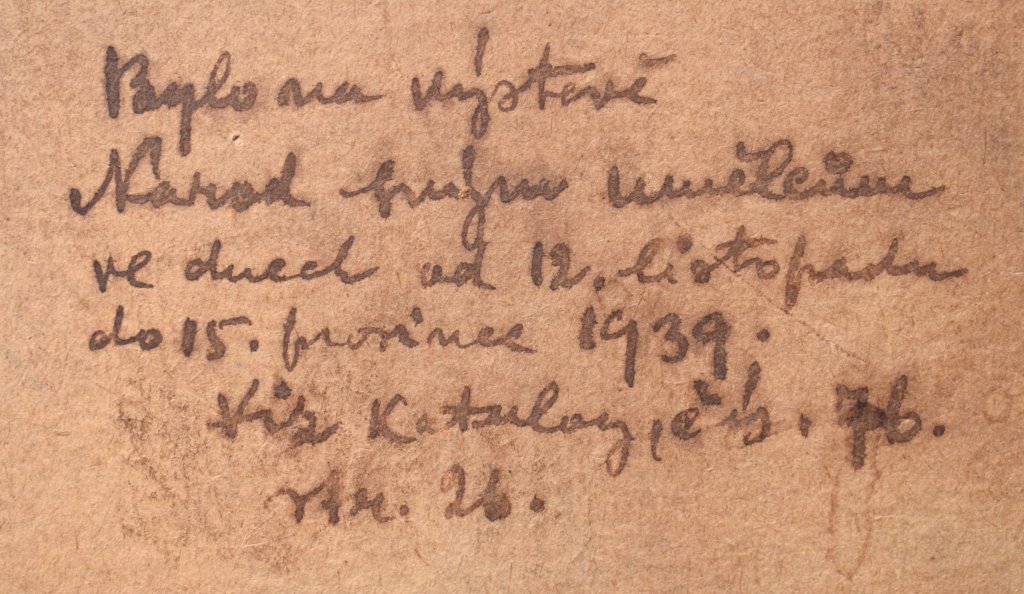 Bylo na výstavě
Národ svým umělcům
ve dnech od 12. listopadu
do 15. prosince 1939.
Viz Katalog, čís. 76.
str. 26.